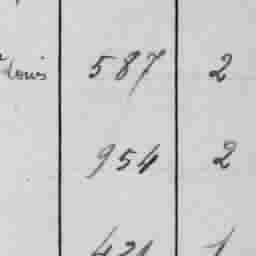 Louis 587 2
954 2
421 1